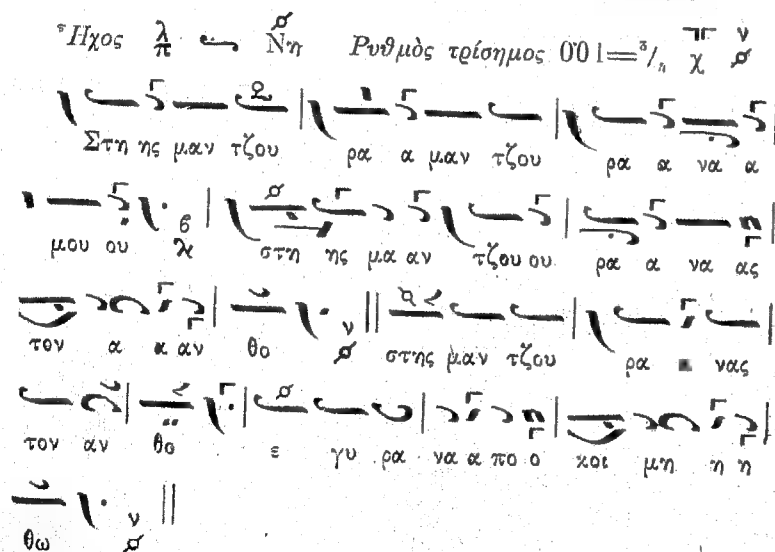 Ἦχος λ π Νη Ρυθμὸς τρίσημος 00 1=3/4 χ ν
Στη ης μαν τζου ρα α μαν τζου ρα α να α
μου ου στη ης μα αν τζου ου ρα α να ας
τον α α αν θο ν στης μαν τζου ρα νας
τον αν θο ε γυ ρα να α πο ο κοι μη η η
θω ν